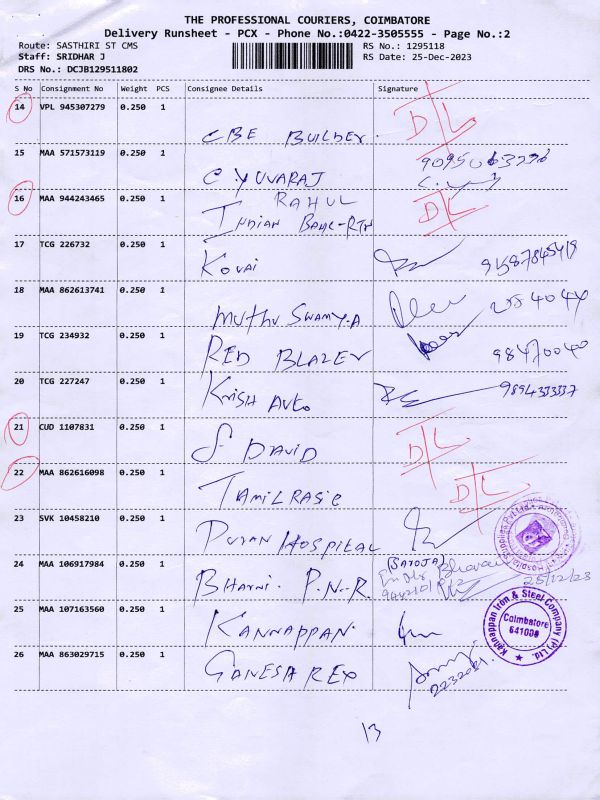 THE PROFESSIONAL COURIERS, COIMBATORE
Delivery Runsheet - PCX - Phone No.:0422-3505555 - Page No.:2
Route: SASTHIRI ST CMS
RS No.: 1295118
Staff: SRIDHAR J
RS Date: 25-Dec-2023
DRS No.: DCJB129511802
S No Consignment No Weight PCS Consignee Details Signature
14 VPL 945307279 0.250 1
CBE BUILDER. D/L
15 MAA 571573119 0.250 1
C YUVARAJ
16 MAA 944243465 0.250 1 RAHUL
INDIAN BANK-RTN D/L
17 TCG 226732 0.250 1
KOVAI
18 MAA 862613741 0.250 1
MUTHU SWAMY.A
19 TCG 234932 0.250 1
RED BLAZER
20 TCG 227247 0.250 1 9894333337
KRISH AUTO
21 CUD 1107831 0.250 1
S DAVID D/L
22 MAA 862616098 0.250 1
TAMILRASIC D/L
23 SVK 10458210 0.250 1
HOSPITAL
24 MAA 106917984 0.250 1
P.N.R. 25/12/23
25 MAA 107163560 0.250 1
KANNAPPAN.
Kannappan Iron & Steel Company (P) Ltd.
Coimbatore
26 MAA 863029715 0.250 1
GANESA REX
13